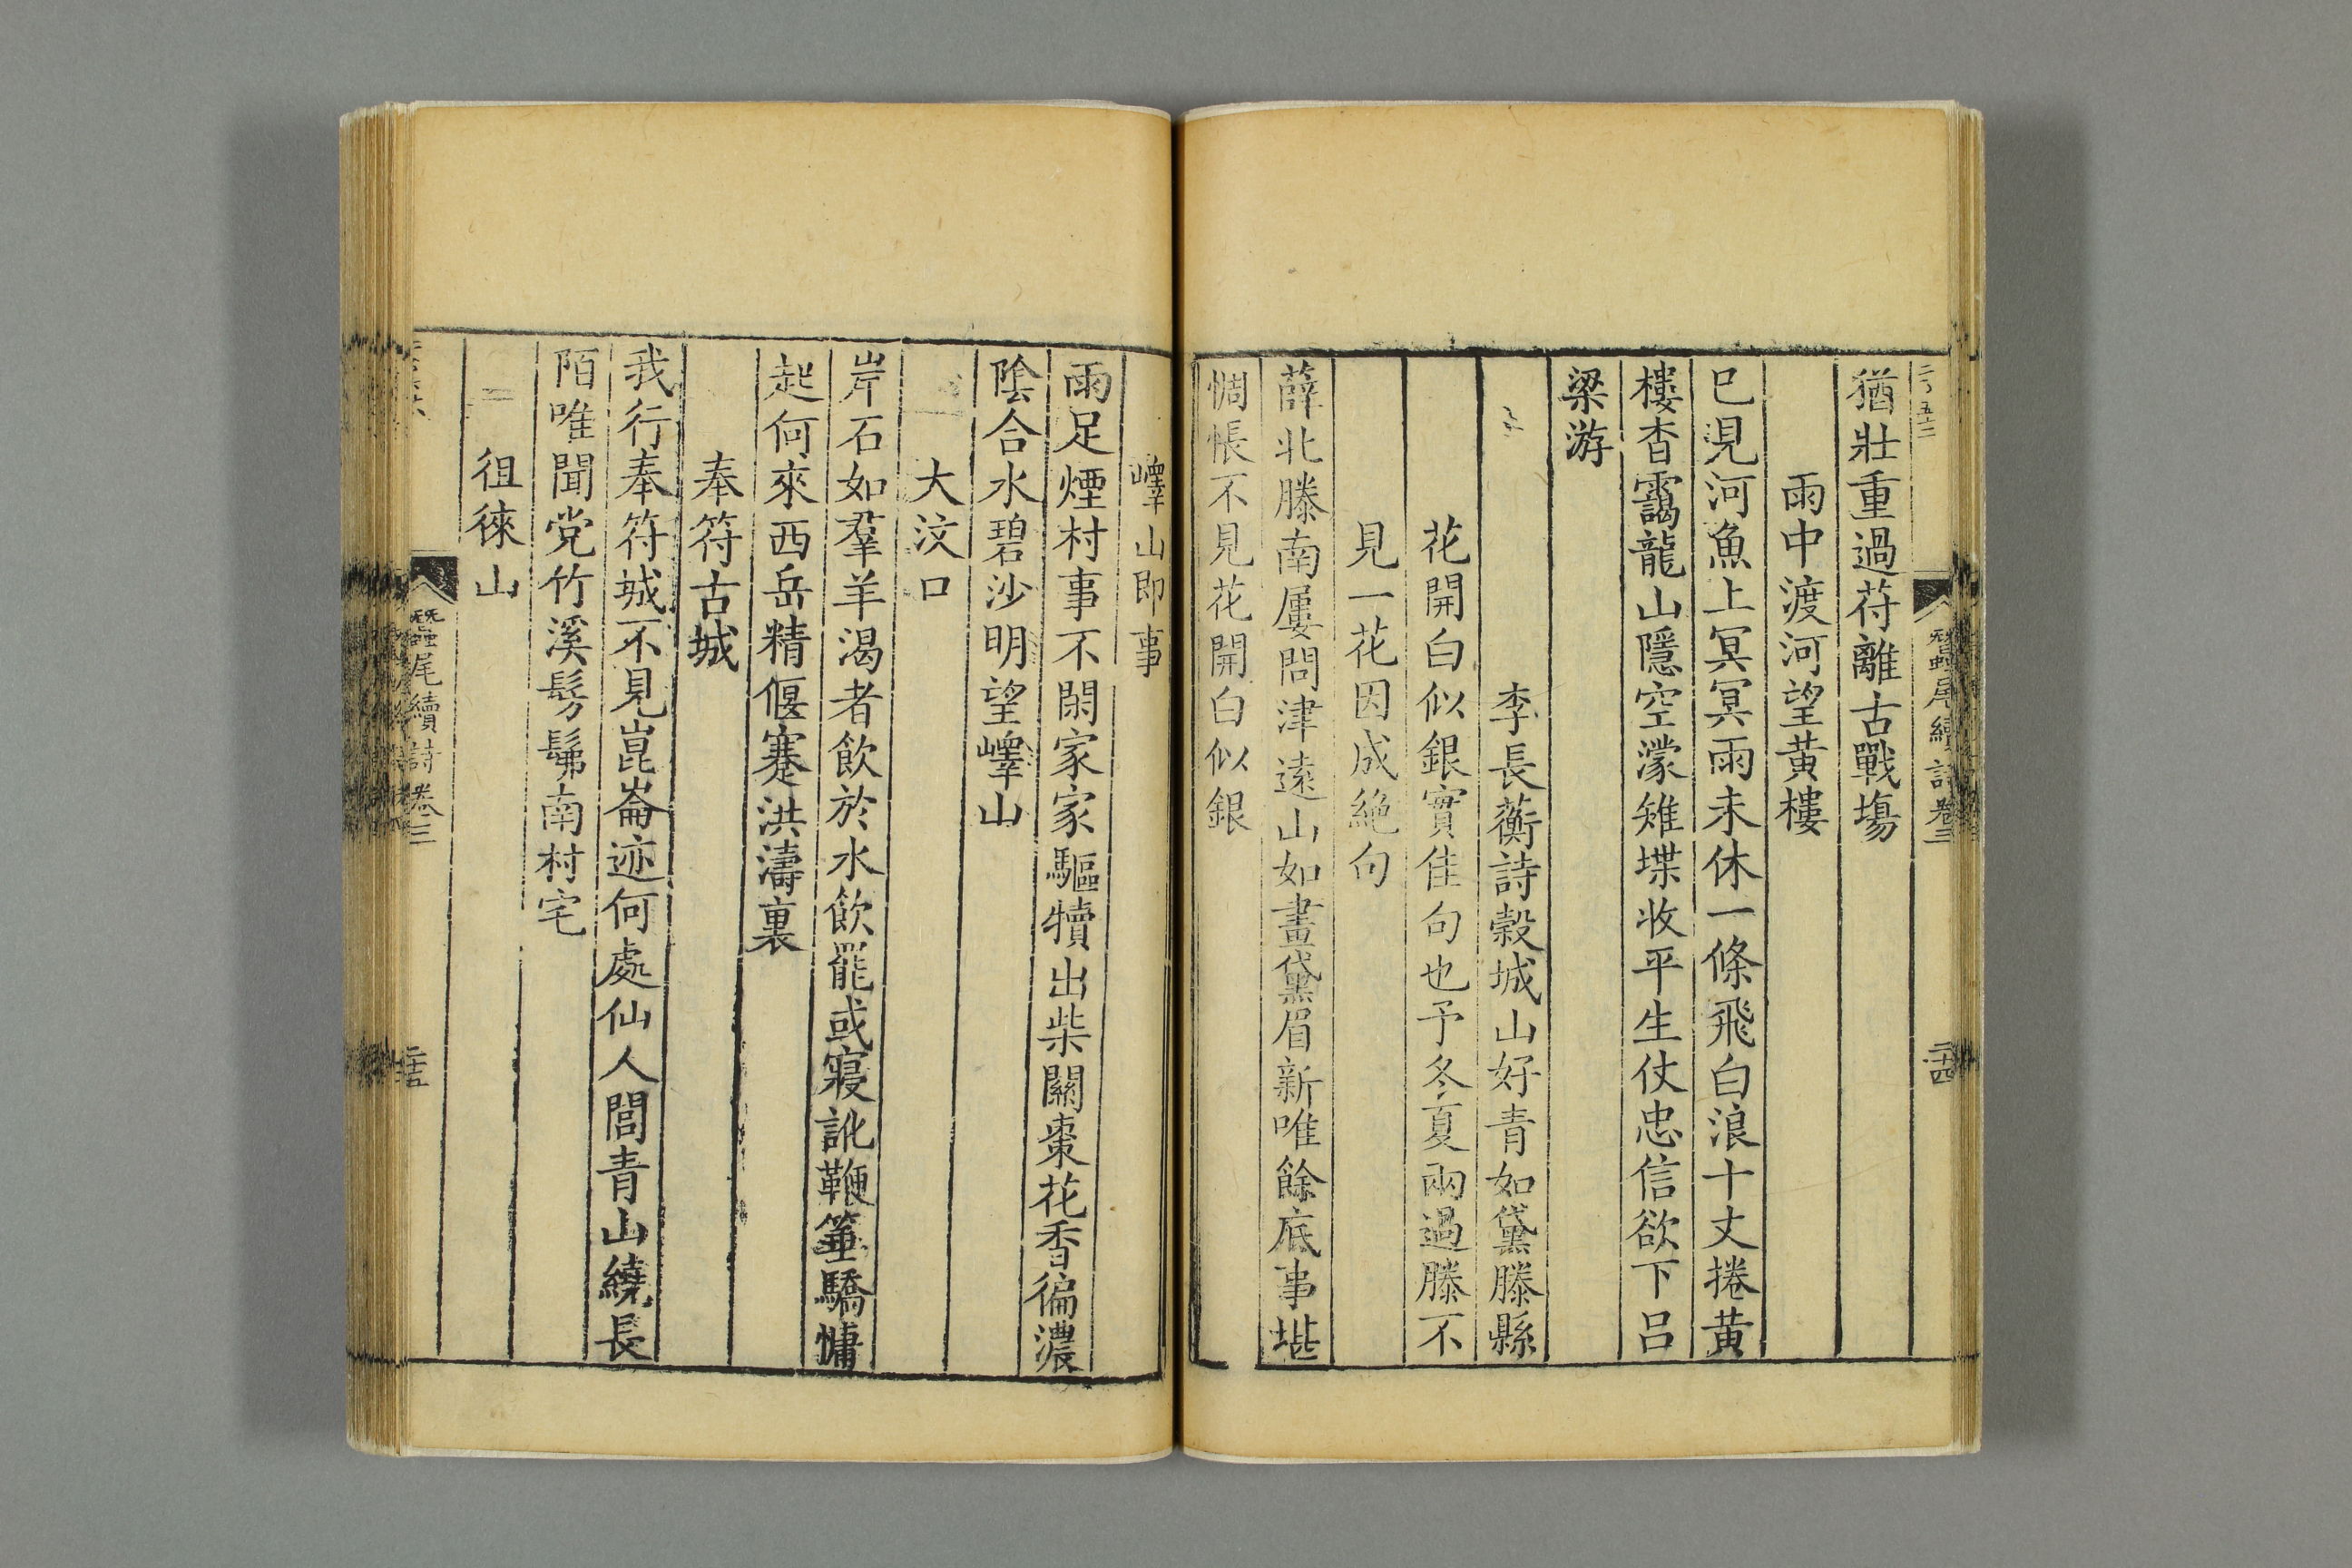 蠶尾續詩卷三
二十四
猶壯重過苻離古戰場
雨中渡河望黃樓
已見河魚上冥冥雨未休一條飛白浪十丈捲黃
樓杳靄龍山隱空濛雉堞收平生仗忠信欲下呂
梁游
李長蘅詩穀城山好青如黛滕縣
花開白似銀實佳句也予冬夏兩過滕不
見一花因成絶句
薛北滕南屢問津遠山如畫黛眉新唯餘底事堪
惆悵不見花開白似銀
嶧山即事
雨足煙村事不閑家家驅犢出柴關棗花香徧濃
陰合水碧沙明望嶧山
大汶口
岸石如羣羊渴者飲於水飲罷或寢訛鞭箠驕慵
起何來西岳精偃蹇洪濤裏
奉符古城
我行奉符城不見崑崙迹何處仙人閭青山繞長
陌唯聞党竹溪髣髴南村宅
徂徠山
蠶尾續詩卷三
二十五